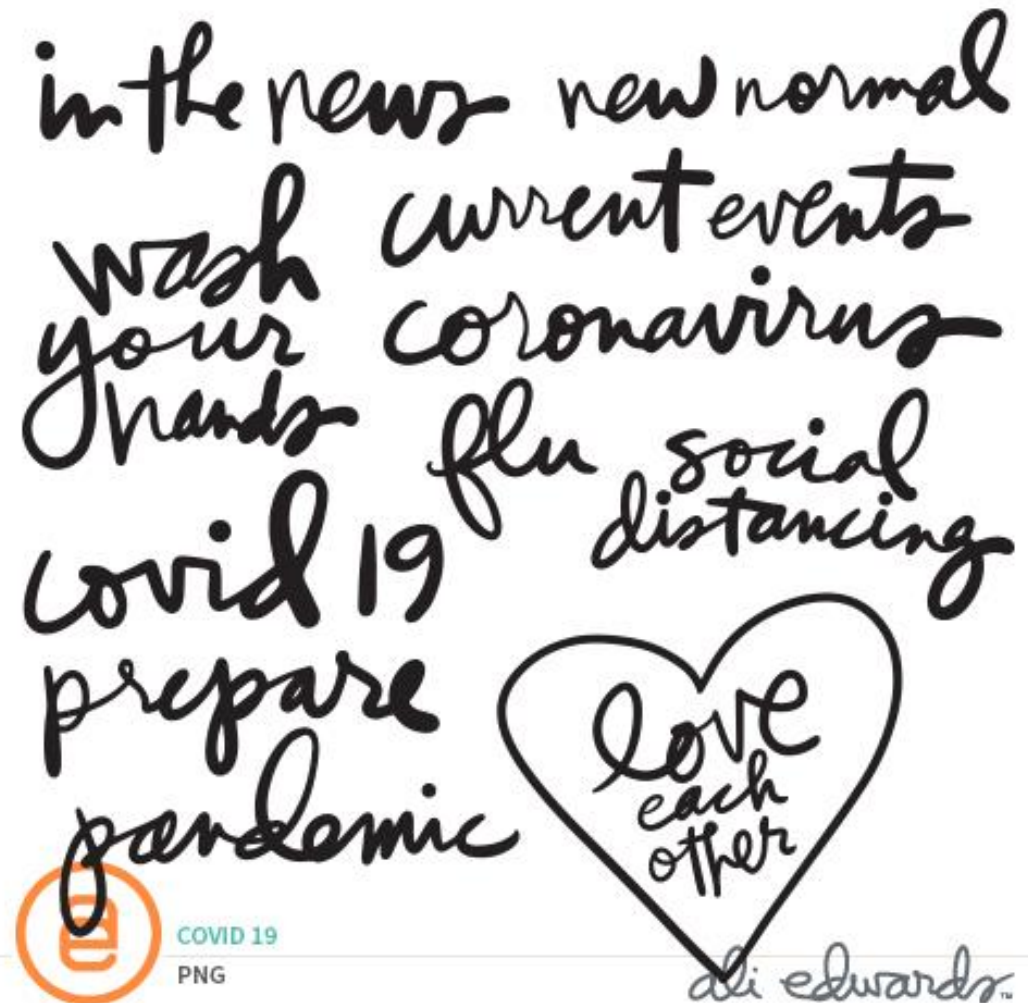 in the news
new normal
wash
your
hands
current events
coronavirus
flu
social
distancing
covid 19
prepare
pandemic
love
each
other
COVID 19
PNG
ali edwards™